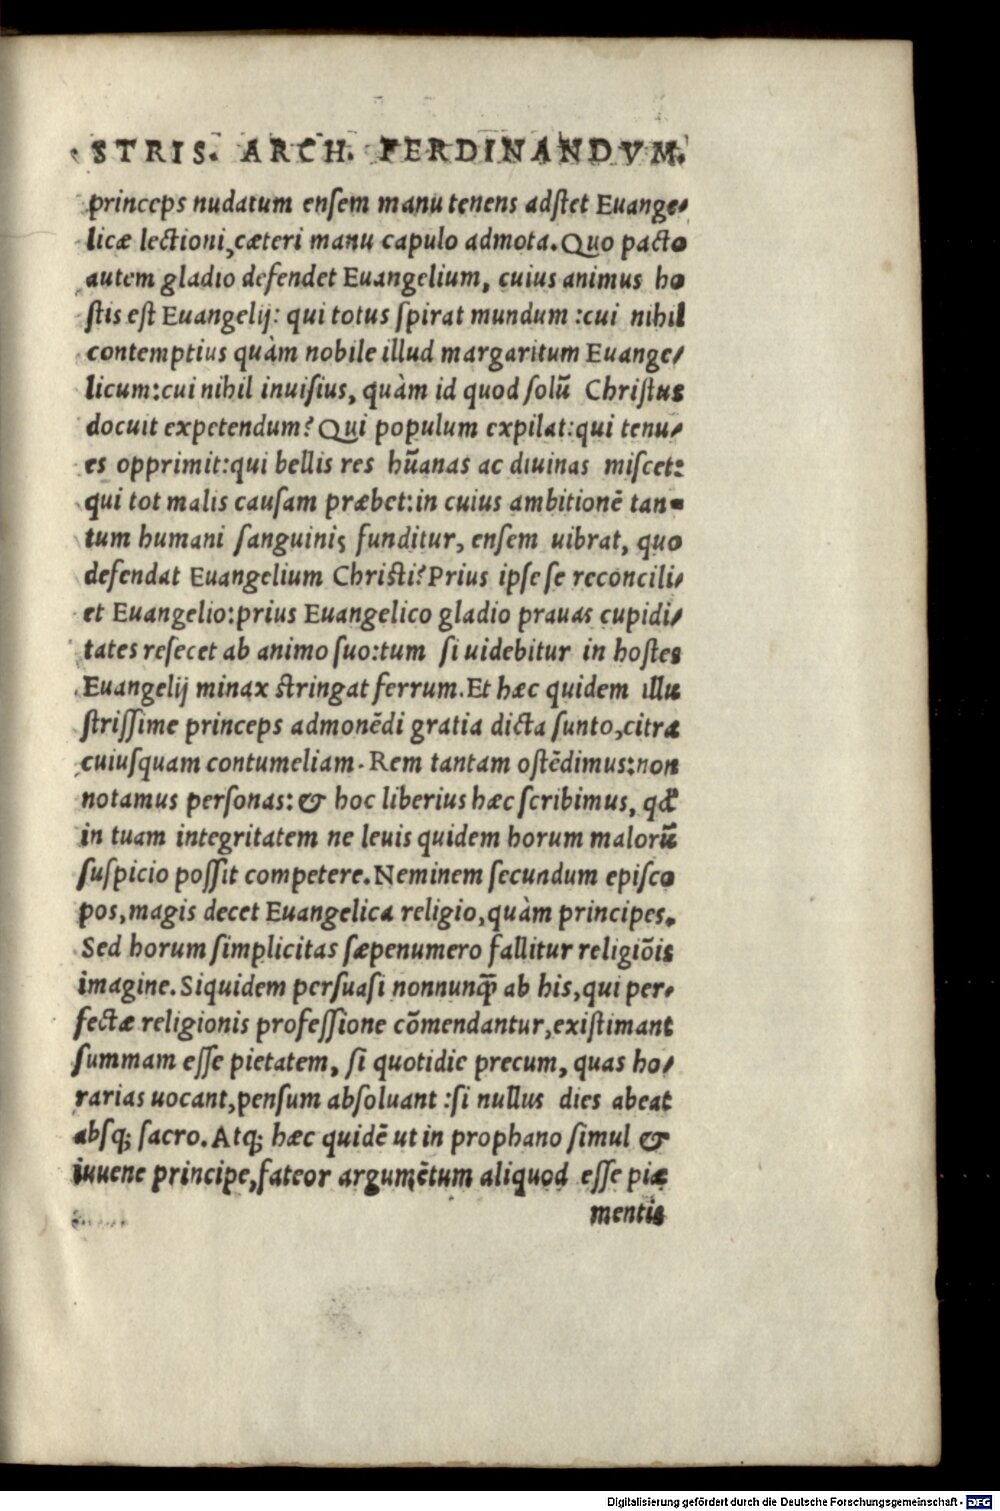 STRIS. ARCH. FERDINANDVM.
princeps nudatum enſem manu tenens adſtet Euange⸗
licæ lectioni, cæteri manu capulo admota. Quo pacto
autem gladio defendet Euangelium, cuius animus ho
ſtis eſt Euangelij: qui totus ſpirat mundum :cui nihil
contemptius quàm nobile illud margaritum Euange⸗
licum:cui nihil inuiſius, quàm id quod ſolũ Chriſtus
docuit expetendum? Qui populum expilat:qui tenu⸗
es opprimit:qui bellis res hũanas ac diuinas miſcet:
qui tot malis cauſam præbet:in cuius ambitionẽ tan⸗
tum humani ſanguinis funditur, enſem uibrat, quo
defendat Euangelium Chriſti? Prius ipſe ſe reconcili⸗
et Euangelio:prius Euangelico gladio prauas cupidi⸗
tates reſecet ab animo ſuo:tum ſi uidebitur in hoſtes
Euangelij minax ſtringat ferrum. Et hæc quidem illu
ſtriſſime princeps admonẽdi gratia dicta ſunto, citra
cuiuſquam contumeliam. Rem tantam oſtẽdimus:non
notamus perſonas: & hoc liberius hæc ſcribimus, qđ
in tuam integritatem ne leuis quidem horum malorũ
ſuſpicio poſſit competere. Neminem ſecundum epiſco
pos, magis decet Euangelica religio, quàm principes.
Sed horum ſimplicitas ſæpenumero fallitur religiõis
imagine. Siquidem perſuaſi nonnunꝗ̃ ab his, qui per⸗
fectæ religionis profeſſione cõmendantur, exiſtimant
ſummam eſſe pietatem, ſi quotidie precum, quas ho⸗
rarias uocant, penſum abſoluant :ſi nullus dies abeat
abſq; ſacro. Atq; hæc quidẽ ut in prophano ſimul &
iuuene principe, fateor argumẽtum aliquod eſſe piæ
mentis
Digitalisierung gefördert durch die Deutsche Forschungsgemeinschaft - DFG